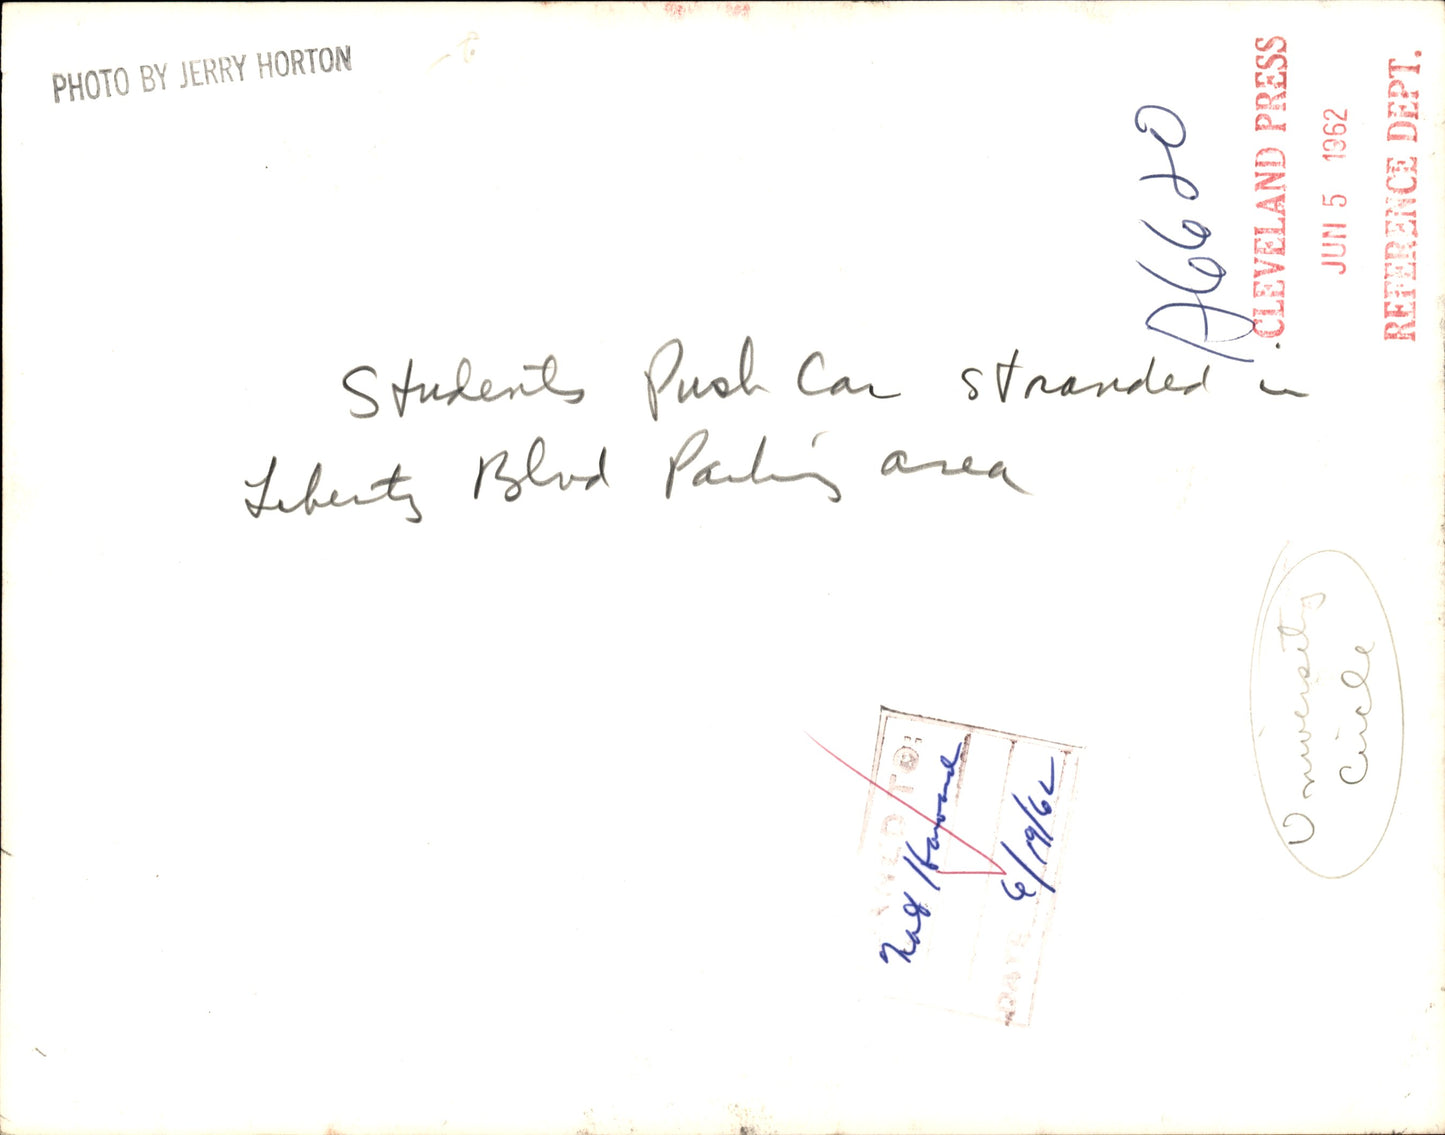 PHOTO BY JERRY HORTON
A6620
CLEVELAND PRESS
JUN 5 1962
REFERENCE DEPT.
Students Push Car stranded in
Liberty Blvd Parking area
University
Circle
TO:
Howard
DATE 6/19/62